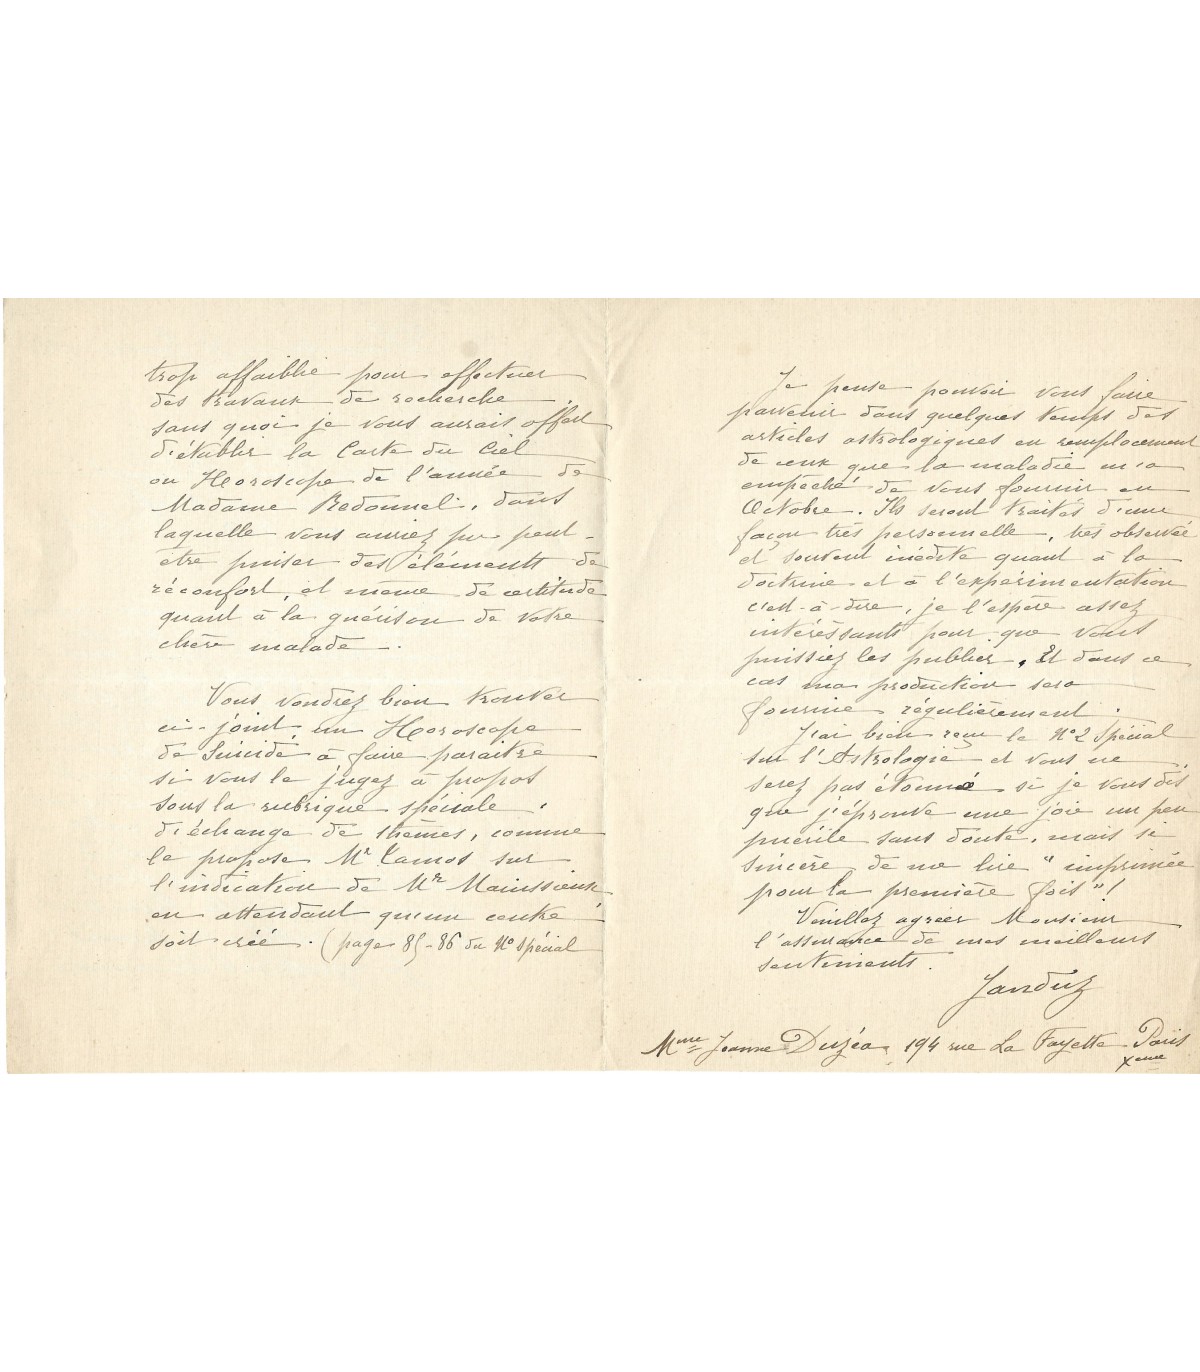 trop affaiblie pour effectuer
des travaux de recherche
sans quoi je vous aurais offert
d'établir la Carte du Ciel
ou Horoscope de l'année de
Madame Redonnel, dans
laquelle vous auriez pu peut-
être puiser des éléments de
réconfort, et même de certitude
quant à la guérison de votre
chère malade.
Vous voudrez bien trouver
ci-joint, un Horoscope
de Suicidé à faire paraitre
si vous le jugez à propos
sous la rubrique spéciale
d'échange de thèmes, comme
le propose Mr Tamos sur
l'indication de Mr Mainssieux
en attendant qu'un centre
soit créé. (page 85-86 du No Spécial
Je pense pouvoir vous faire
parvenir dans quelques temps des
articles astrologiques en remplacement
de ceux que la maladie m'a
empêché de vous fournir en
Octobre. Ils seront traités d'une
façon très personnelle, très observée
et souvent inédite quant à la
doctrine et à l'expérimentation
c'est-à-dire, je l'espère assez
intéressants pour que vous
puissiez les publier. Et dans ce
cas ma production sera
fournie régulièrement.
J'ai bien reçu le No 2 Spécial
sur l'Astrologie et vous ne
serez pas étonné si je vous dis
que j'éprouve une joie un peu
puérile sans doute, mais si
sincère de me lire "imprimée
pour la première fois"!
Veuillez agréer Monsieur
l'assurance de mes meilleurs
sentiments.
Janduz
Mme Jeanne Duzéa, 194 rue La Fayette Paris
Xeme